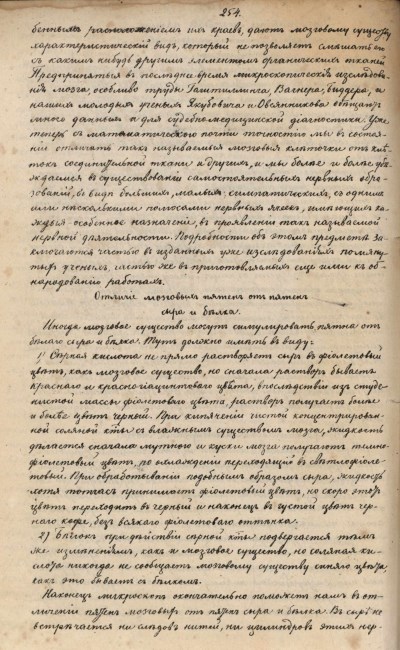 254.
бенными расположеніемъ ихъ краевъ, даютъ мозговому существу
характеристическій видъ, который не позволяетъ смѣшать его
съ какимъ нибудь другимъ элементомъ органическихъ тканей.
Предпринятыя въ послѣднее время микроскопическія изслѣдова-
нія мозга, особливо труды Гаштиллинга, Вагнера, Биддера, и
нашихъ молодыхъ ученыхъ Якубовича и Овсянникова обѣщаютъ
много данныхъ и для судебномедицинской діагностики. Уже
теперь съ математическою почти точностію мы въ состоя-
ніи отличать такъ называемыя мозговыя клѣточки отъ клѣ-
токъ соединительной ткани и другихъ, и мы болѣе и болѣе убѣ-
ждаемся въ существованіи самостоятельныхъ нервныхъ обра-
зованій, въ видѣ большихъ, малыхъ, симпатическихъ, съ однимъ
или нѣсколькими полюсами нервныхъ ячеекъ, имѣющихъ ка-
ждый особенное назначеніе, въ проявленіи такъ называемой
нервной дѣятельности. Подробности объ этомъ предметѣ за-
ключаются частью въ изданныхъ уже изслѣдованіяхъ помяну-
тыхъ ученыхъ, частью же въ приготовляемыхъ еще ими къ об-
народованію работахъ.
Отличіе мозговыхъ пятенъ отъ пятенъ
сыра и бѣлка.
Иногда мозговое существо могутъ симулировать пятна отъ
бѣлаго сыра и бѣлка. Тутъ должно имѣть въ виду:
1) Сѣрная кислота не прямо растворяетъ сыръ въ фіолетовый
цвѣтъ, какъ мозговое существо, но сначала растворъ бываетъ
краснаго и красногіацинтоваго цвѣта, впослѣдствіи изъ студе-
нистой массы фіолетоваго цвѣта, растворъ получаетъ болѣе
и болѣе цвѣтъ черный. При кипяченіи чистой концентрирован-
ной соляной кты съ влажнымъ существомъ мозга, жидкость
дѣлается сначала мутною и куски мозга получаютъ темно-
фіолетовый цвѣтъ, по охлажденіи переходящій въ свѣтлофіоле-
товый. При обработываніи подобнымъ образомъ сыра, жидкость
хотя тотчасъ принимаетъ фіолетовый цвѣтъ, но скоро этотъ
цвѣтъ переходитъ въ черный и наконецъ въ густой цвѣтъ чер-
наго кофе, безъ всякаго фіолетоваго оттѣнка.
2) Бѣлокъ при дѣйствіи сѣрной кты подвергается тѣмъ
же измѣненіямъ, какъ и мозговое существо, но соляная ки-
слота никогда не сообщаетъ мозговому существу синяго цвѣта
какъ это бываетъ съ бѣлкомъ.
Наконецъ микроскопъ окончательно поможетъ намъ въ от-
личеніи пятенъ мозговыхъ отъ пятенъ сыра и бѣлка. Въ сырѣ не
встрѣчается ни слѣдовъ нитей, ни цилиндровъ этихъ нер-